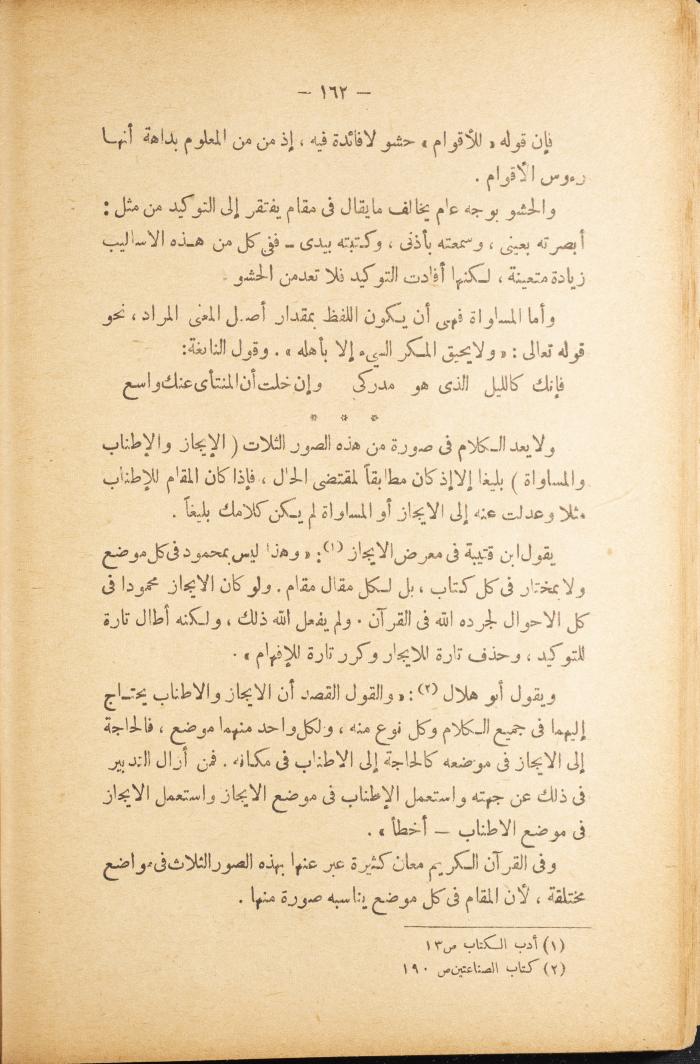 — ١٦٢ —
فإن قوله « للأقوام » حشو لا فائدة فيه ، إذ من من المعلوم بداهة أنها
رءوس الأقوام .
والحشو بوجه عام يخالف ما يقال فى مقام يفتقر إلى التوكيد من مثل :
أبصرته بعينى ، وسمعته بأذنى ، وكتبته بيدى ــ ففى كل من هذه الاساليب
زيادة متعينة ، لكنها أفادت التوكيد فلا تعد من الحشو
وأما المساواة فهى أن يكون اللفظ بمقدار أصل المعنى المراد ، نحو
قوله تعالى : « ولا يحيق المكر السيء إلا بأهله » . وقول النابغة:
فإنك كالليل الذى هو مدركى وإن خلت أن المنتأى عنك واسع
* * *
ولا يعد الكلام فى صورة من هذه الصور الثلاث ( الإيجاز والإطناب
والمساواة ) بليغا إلا إذ كان مطابقاً لمقتضى الحال ، فإذا كان المقام للإطناب
مثلا وعدلت عنه إلى الايجاز أو المساواة لم يكن كلامك بليغاً .
يقول ابن قتيبة فى معرض الايجاز (١) : « وهذا ليس بمحمود فى كل موضع
ولا بمختار فى كل كتاب ، بل لكل مقال مقام . ولو كان الايجاز محمودا فى
كل الاحوال لجرده الله فى القرآن . ولم يفعل الله ذلك ، ولكنه أطال تارة
للتوكيد ، وحذف تارة للايجار وكرر تارة للإفهام » .
ويقول أبو هلال (٢) : « والقول القصد أن الايجاز والاطناب يحتاج
إليهما فى جميع الكلام وكل نوع منه ، ولكل واحد منهما موضع ، فالحاجة
إلى الايجاز فى موضعه كالحاجة إلى الاطناب فى مكانه . فمن أزال التدبير
فى ذلك عن جهته واستعمل الإطناب فى موضع الايجاز واستعمل الايجاز
فى موضع الاطناب — أخطأ » .
وفى القرآن الكريم معان كثيرة عبر عنها بهذه الصور الثلاث فى مواضع
مختلفة ، لأن المقام فى كل موضع يناسبه صورة منها .
(١) أدب الكتاب ص ١٣
(٢) كتاب الصناعتين ص ١٩٠